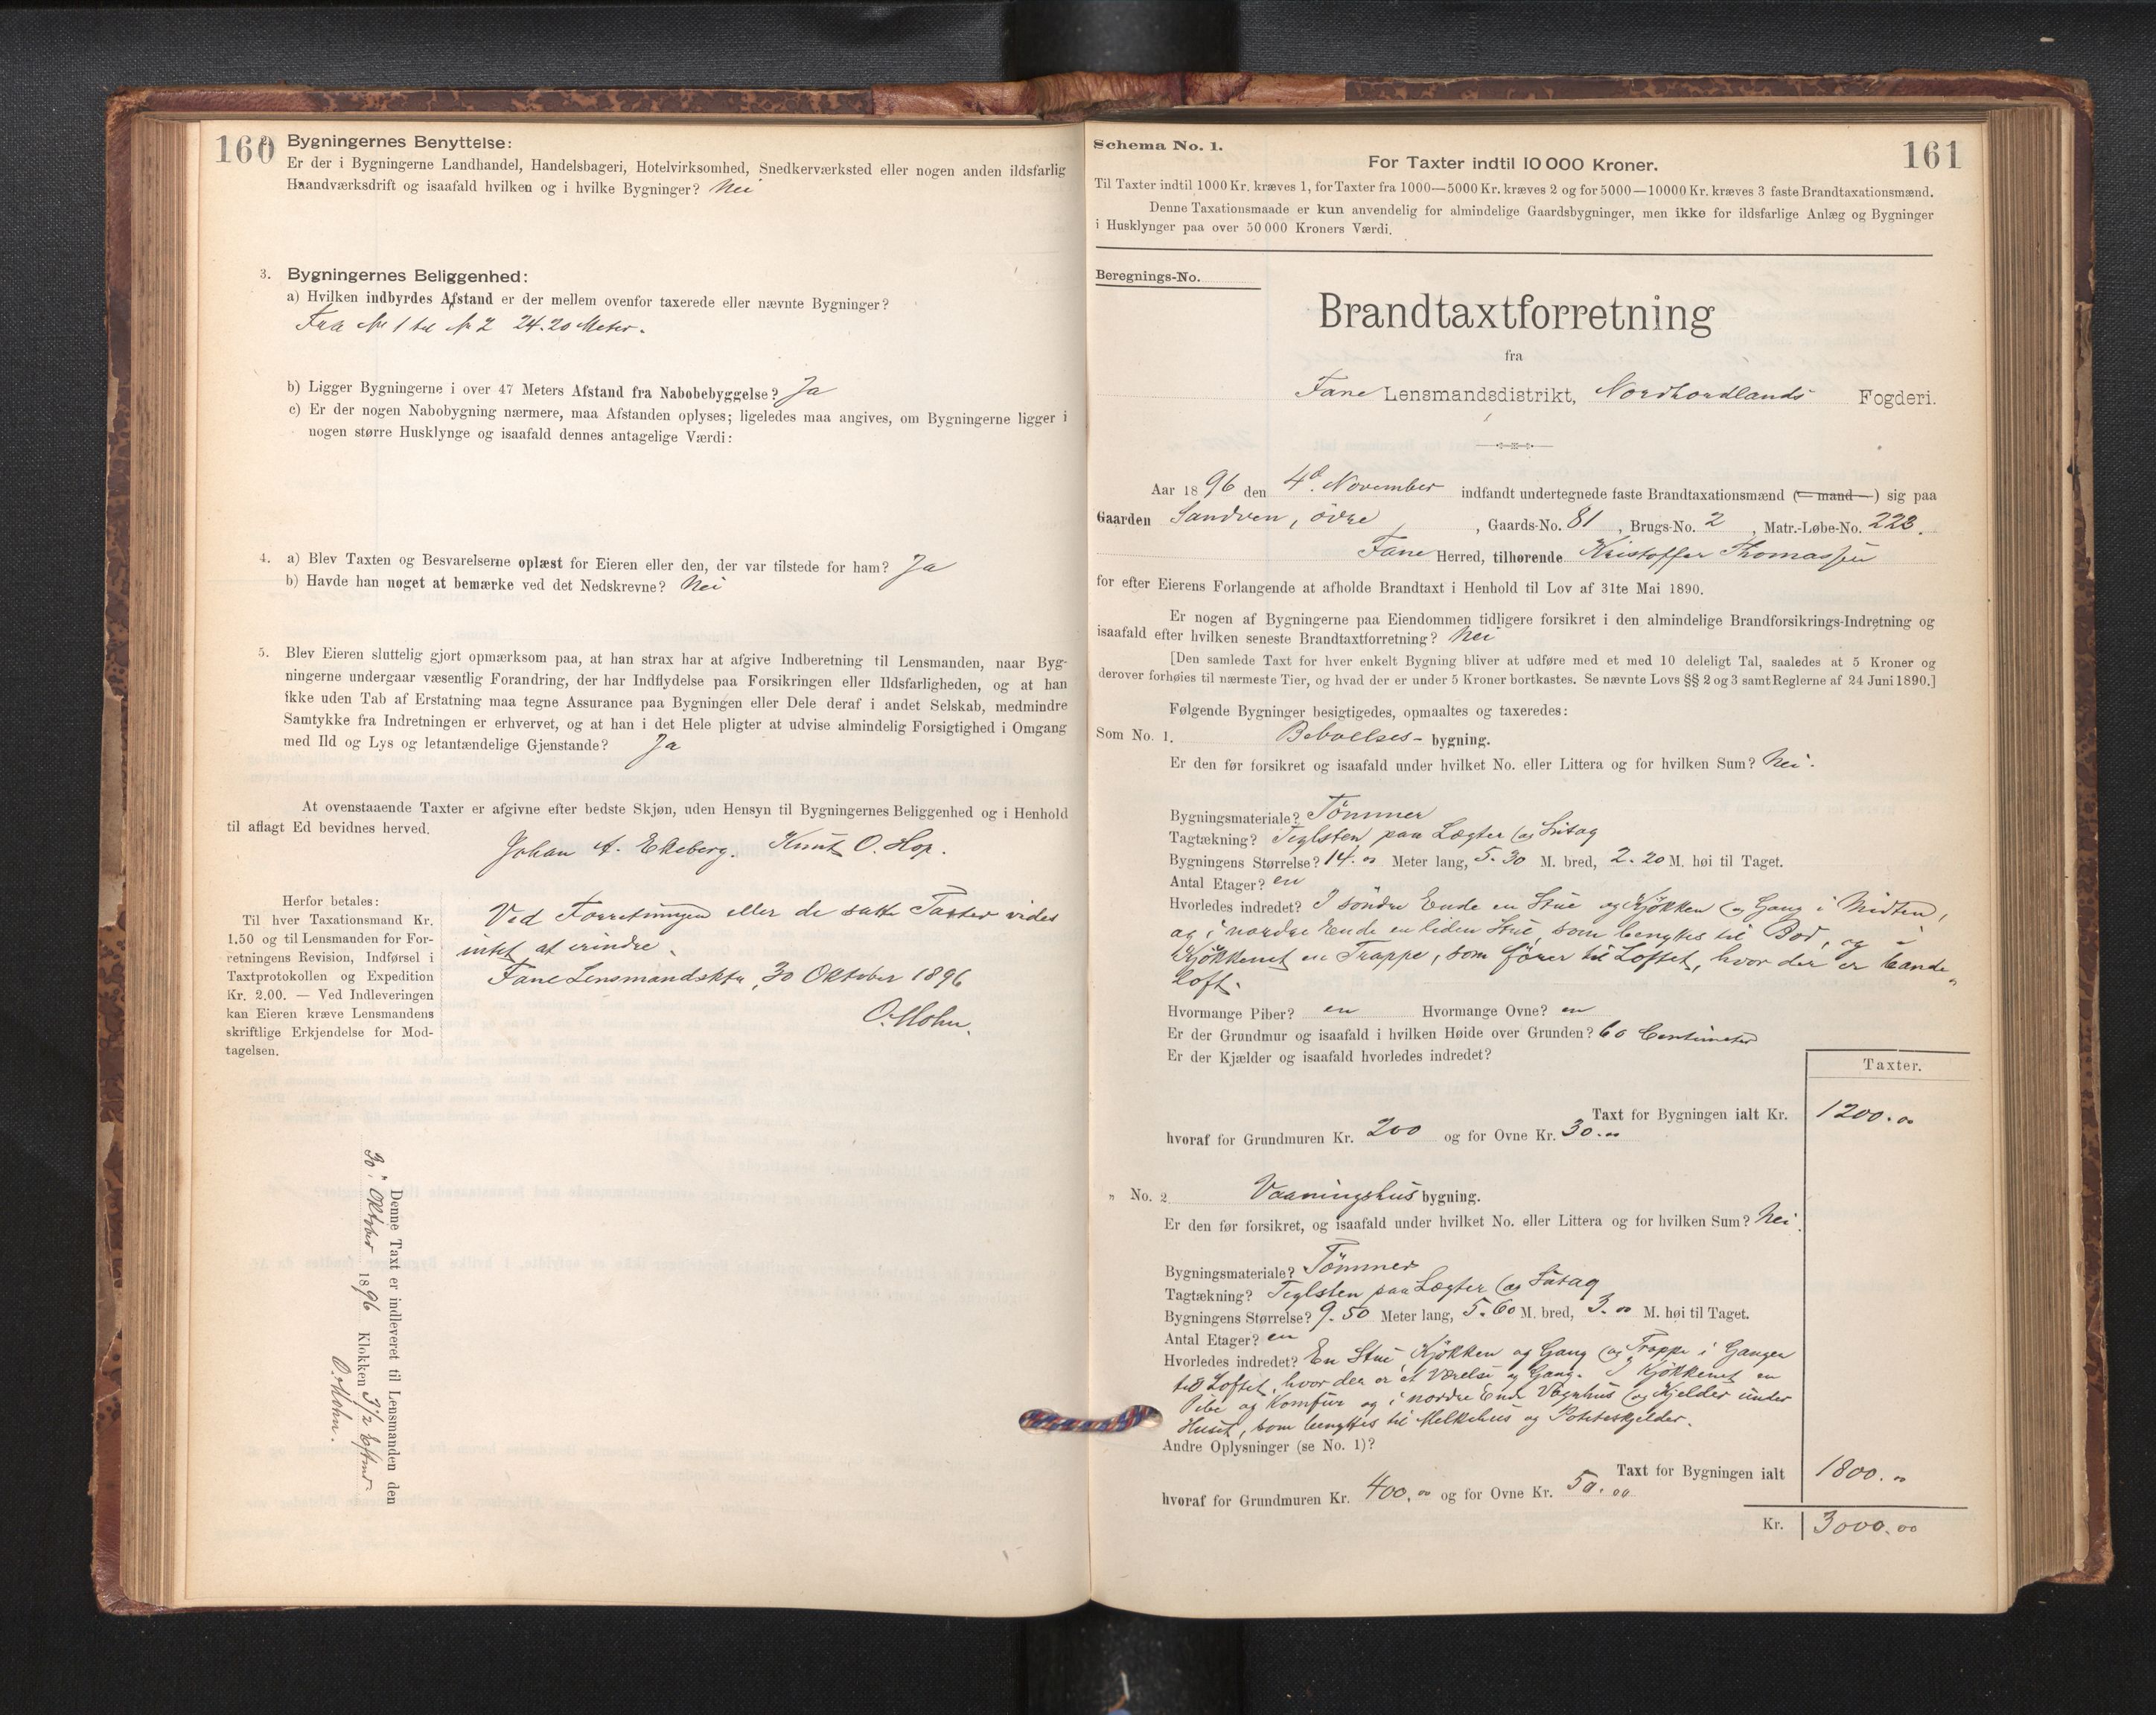 160
Bygningernes Benyttelse:
Er der i Bygningerne Landhandel, Handelsbageri, Hotelvirksomhed, Snedkerværksted eller nogen anden ildsfarlig
Haandværksdrift og isaafald hvilken og i hvilke Bygninger? Nei
3. Bygningernes Beliggenhed:
a) Hvilken indbyrdes Afstand er der mellem ovenfor taxerede eller nævnte Bygninger?
Fra No 1 til No 2 24.20 Meter.
b) Ligger Bygningerne i over 47 Meters Afstand fra Nabobebyggelse? Ja
c) Er der nogen Nabobygning nærmere, maa Afstanden oplyses; ligeledes maa angives, om Bygningerne ligger i
nogen større Husklynge og isaafald dennes antagelige Værdi:
4. a) Blev Taxten og Besvarelserne oplæst for Eieren eller den, der var tilstede for ham? Ja
b) Havde han noget at bemærke ved det Nedskrevne? Nei
5. Blev Eieren sluttelig gjort opmærksom paa, at han strax har at afgive Indberetning til Lensmanden, naar Byg-
ningerne undergaar væsentlig Forandring, der har Indflydelse paa Forsikringen eller Ildsfarligheden, og at han
ikke uden Tab af Erstatning maa tegne Assurance paa Bygningen eller Dele deraf i andet Selskab, medmindre
Samtykke fra Indretningen er erhvervet, og at han i det Hele pligter at udvise almindelig Forsigtighed i Omgang
med Ild og Lys og letantændelige Gjenstande? Ja
At ovenstaaende Taxter er afgivne efter bedste Skjøn, uden Hensyn til Bygningernes Beliggenhed og i Henhold
til aflagt Ed bevidnes herved.
Johan A. Ekeberg. Knut O. Hop.
Herfor betales:
Til hver Taxationsmand Kr.
1.50 og til Lensmanden for For-
retningens Revision, Indførsel i
Taxtprotokollen og Expedition
Kr. 2.00. — Ved Indleveringen
kan Eieren kræve Lensmandens
skriftlige Erkjendelse for Mod-
tagelsen.
Ved Forretningen eller de satte Taxter vides
intet at erindre.
Fane Lensmandsktr, 30 Oktober 1896
O. Mohn.
Denne Taxt er indleveret til Lensmanden den
30. Oktober 1896 Klokken 3 1/2 Eftmd.
O. Mohn.
Schema No. 1.
161
For Taxter indtil 10 000 Kroner.
Til Taxter indtil 1000 Kr. kræves 1, for Taxter fra 1000—5000 Kr. kræves 2 og for 5000—10000 Kr. kræves 3 faste Brandtaxationsmænd.
Denne Taxationsmaade er kun anvendelig for almindelige Gaardsbygninger, men ikke for ildsfarlige Anlæg og Bygninger
i Husklynger paa over 50 000 Kroners Værdi.
Beregnings-No.
Brandtaxtforretning
fra
Fane Lensmandsdistrikt, Nordhordlands Fogderi.
Aar 1896 den 4d November indfandt undertegnede faste Brandtaxationsmænd (— mand —) sig paa
Gaarden Sandven, övre, Gaards-No. 81, Brugs-No. 2, Matr.-Løbe-No. 223.
Fane Herred, tilhørende Kristoffer Thomassen
for efter Eierens Forlangende at afholde Brandtaxt i Henhold til Lov af 31te Mai 1890.
Er nogen af Bygningerne paa Eiendommen tidligere forsikret i den almindelige Brandforsikrings-Indretning og
isaafald efter hvilken seneste Brandtaxtforretning? Nei
[Den samlede Taxt for hver enkelt Bygning bliver at udføre med et med 10 deleligt Tal, saaledes at 5 Kroner og
derover forhøies til nærmeste Tier, og hvad der er under 5 Kroner bortkastes. Se nævnte Lovs §§ 2 og 3 samt Reglerne af 24 Juni 1890.]
Følgende Bygninger besigtigedes, opmaaltes og taxeredes:
Som No. 1. Beboelses- bygning.
Er den før forsikret og isaafald under hvilket No. eller Littera og for hvilken Sum? Nei.
Bygningsmateriale? Tömmer
Tagtækning? Teglsten paa Lægter og Sutag
Bygningens Størrelse? 14.00 Meter lang, 5.30 M. bred, 2.20 M. høi til Taget.
Antal Etager? en
Hvorledes indredet? I söndre Ende en Stue og Kjökken og Gang i Midten,
og i nordre Ende en liden Stue, som benyttes til Bod, og i
Kjökkenet en Trappe, som förer til Loftet, hvor der er
Loft.
Hvormange Piber? en Hvormange Ovne? en
Er der Grundmur og isaafald i hvilken Høide over Grunden? 60 Centimeter
Er der Kjælder og isaafald hvorledes indredet?
Taxter.
Taxt for Bygningen ialt Kr. 1200.00
hvoraf for Grundmuren Kr. 200 og for Ovne Kr. 30.00
" No. 2 Vaaningshus bygning.
Er den før forsikret, og isaafald under hvilket No. eller Littera og for hvilken Sum? Nei.
Bygningsmateriale? Tömmer
Tagtækning? Teglsten paa Lægter og Sutag
Bygningens Størrelse? 9.50 Meter lang, 5.60 M. bred, 3.00 M. høi til Taget.
Antal Etager? en
Hvorledes indredet? En Stue, Kjökken og Gang og Trappe i Gangen
til Loftet, hvor der er et Værelse og Gang. I Kjökkenet en
Pibe og Komfur og i nordre Ende Vognhus og Kjelder under
Huset, som benyttes til Melkehus og Potetskjelder.
Andre Oplysninger (se No. 1)?
Taxt for Bygningen ialt 1800.00
hvoraf for Grundmuren Kr. 400.00 og for Ovne Kr. 50.00
Kr. 3000.00